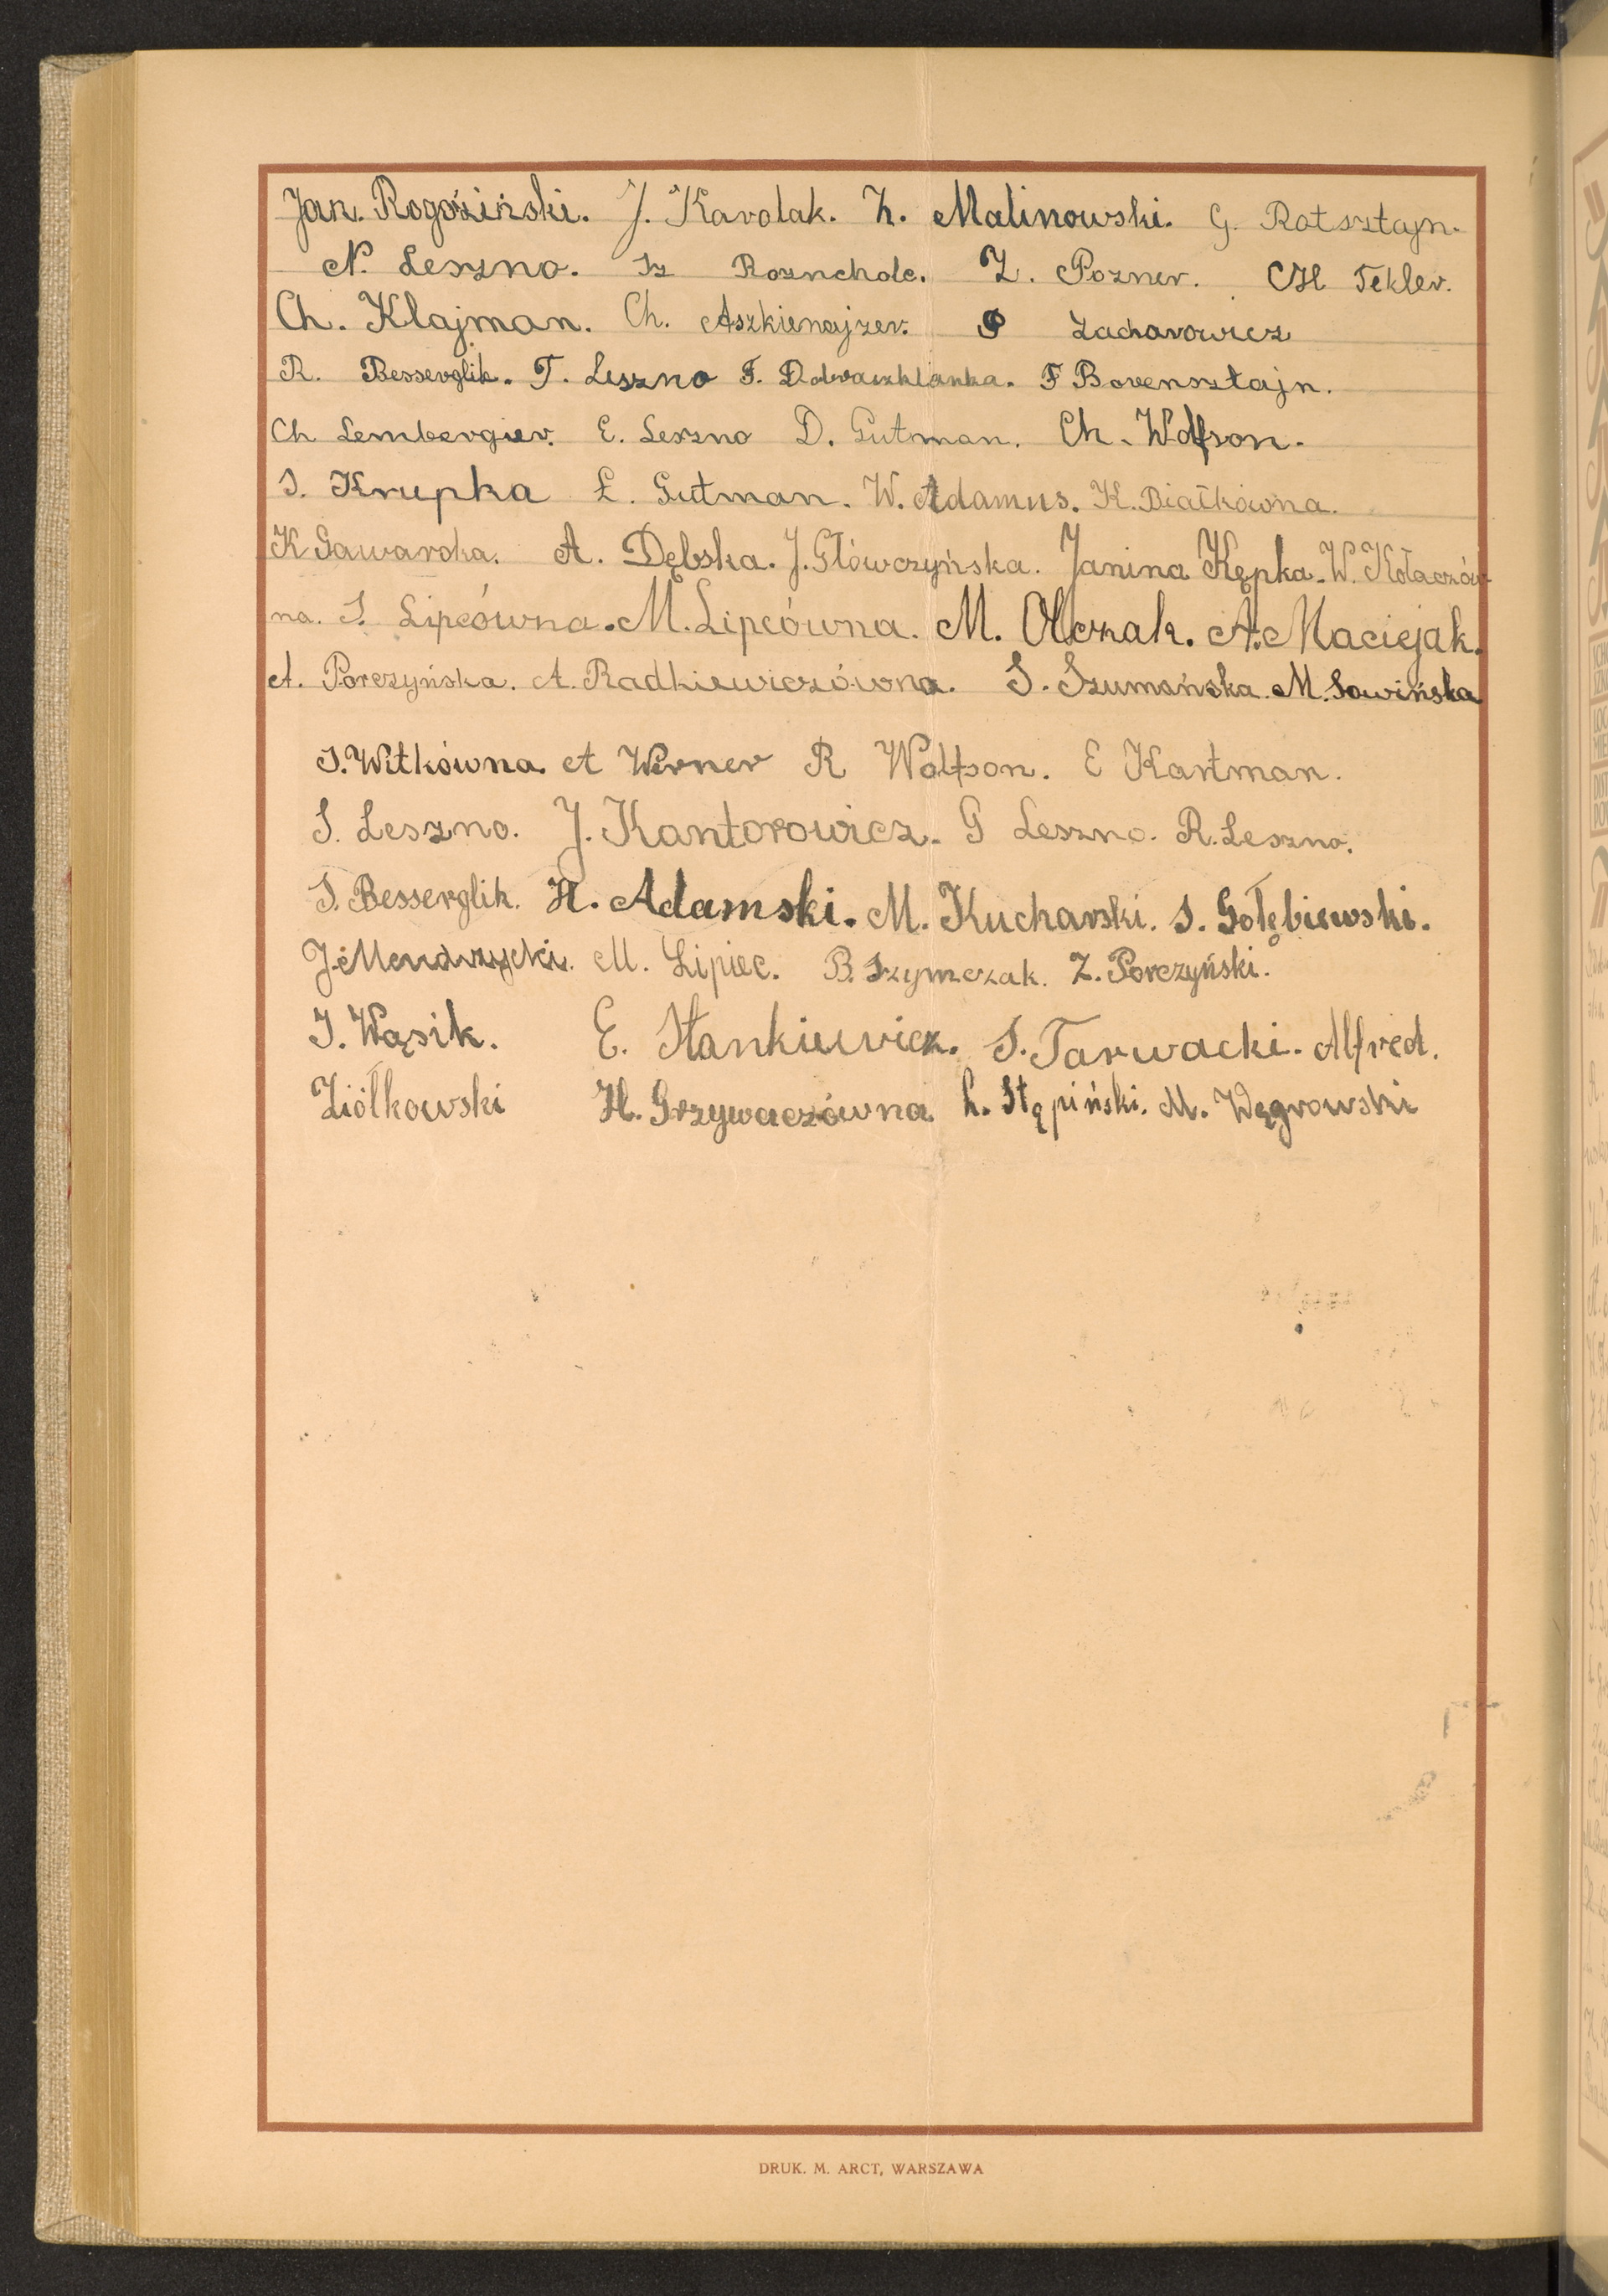 Jan. Rogoziński. J. Karolak. Z. Malinowski. G. Rotsztajn.
N. Leszno. Sz Roznchole. Z. Pozner. CH Tekler.
Ch. Klajman. Ch. Aszkienajzer. S Zacharowicz
R. Besserglik. T. Leszno F. F Borensztajn.
Ch Lembergier. E. Leszno D. Gutman. Ch. Wolfson.
S. Krupka E. Gutman. W. Adamus. K. Białkówna.
K Gawarska. A. Dębska. J. Główczyńska. Janina Kępka. W. Kołaczów
na. S. Lipcówna. M. Lipcówna. M. Olczak. A. Maciejak.
A. Porczyńska. A. Radkiewiczówna. S. Szumańska. M. Sowińska
S. Witkówna. A Werner R Wolfson. E Kartman.
S. Leszno. J. Kantorowicz. G Leszno. R. Leszno.
S. Besserglik. H. Adamski. M. Kucharski. S. Gołębiewski.
J. Mendrzycki. M. Lipiec. B. Szymczak. Z. Porczyński.
J. Wąsik. E. Stankiewicz. S. Tarwacki. Alfred.
Ziółkowski H. Grzywaczówna L. Stępiński. M. Węgrowski
DRUK. M. ARCT, WARSZAWA